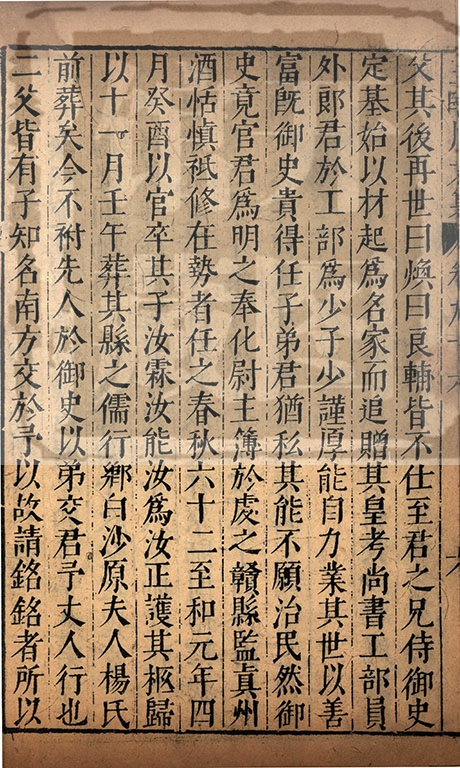 父其後再世曰煥曰良輔皆不仕至君之兄侍御史
定基始以材起爲名家而追贈其皇考尚書工部員
外郎君於工部爲少子少謹厚能自力業其世以善
富既御史貴得任子弟君猶私其能不願治民然御
史竟官君爲明之奉化尉主簿於虔之贛縣監真州
酒恬慎祗修在勢者任之春秋六十二至和元年四
月癸酉以官卒其子汝霖汝能汝爲汝正護其柩歸
以十一月壬午葬其縣之儒行鄉白沙原夫人楊氏
前葬矣今不祔先人於御史以弟交君予丈人行也
二父皆有子知名南方交於予以故請銘銘者所以